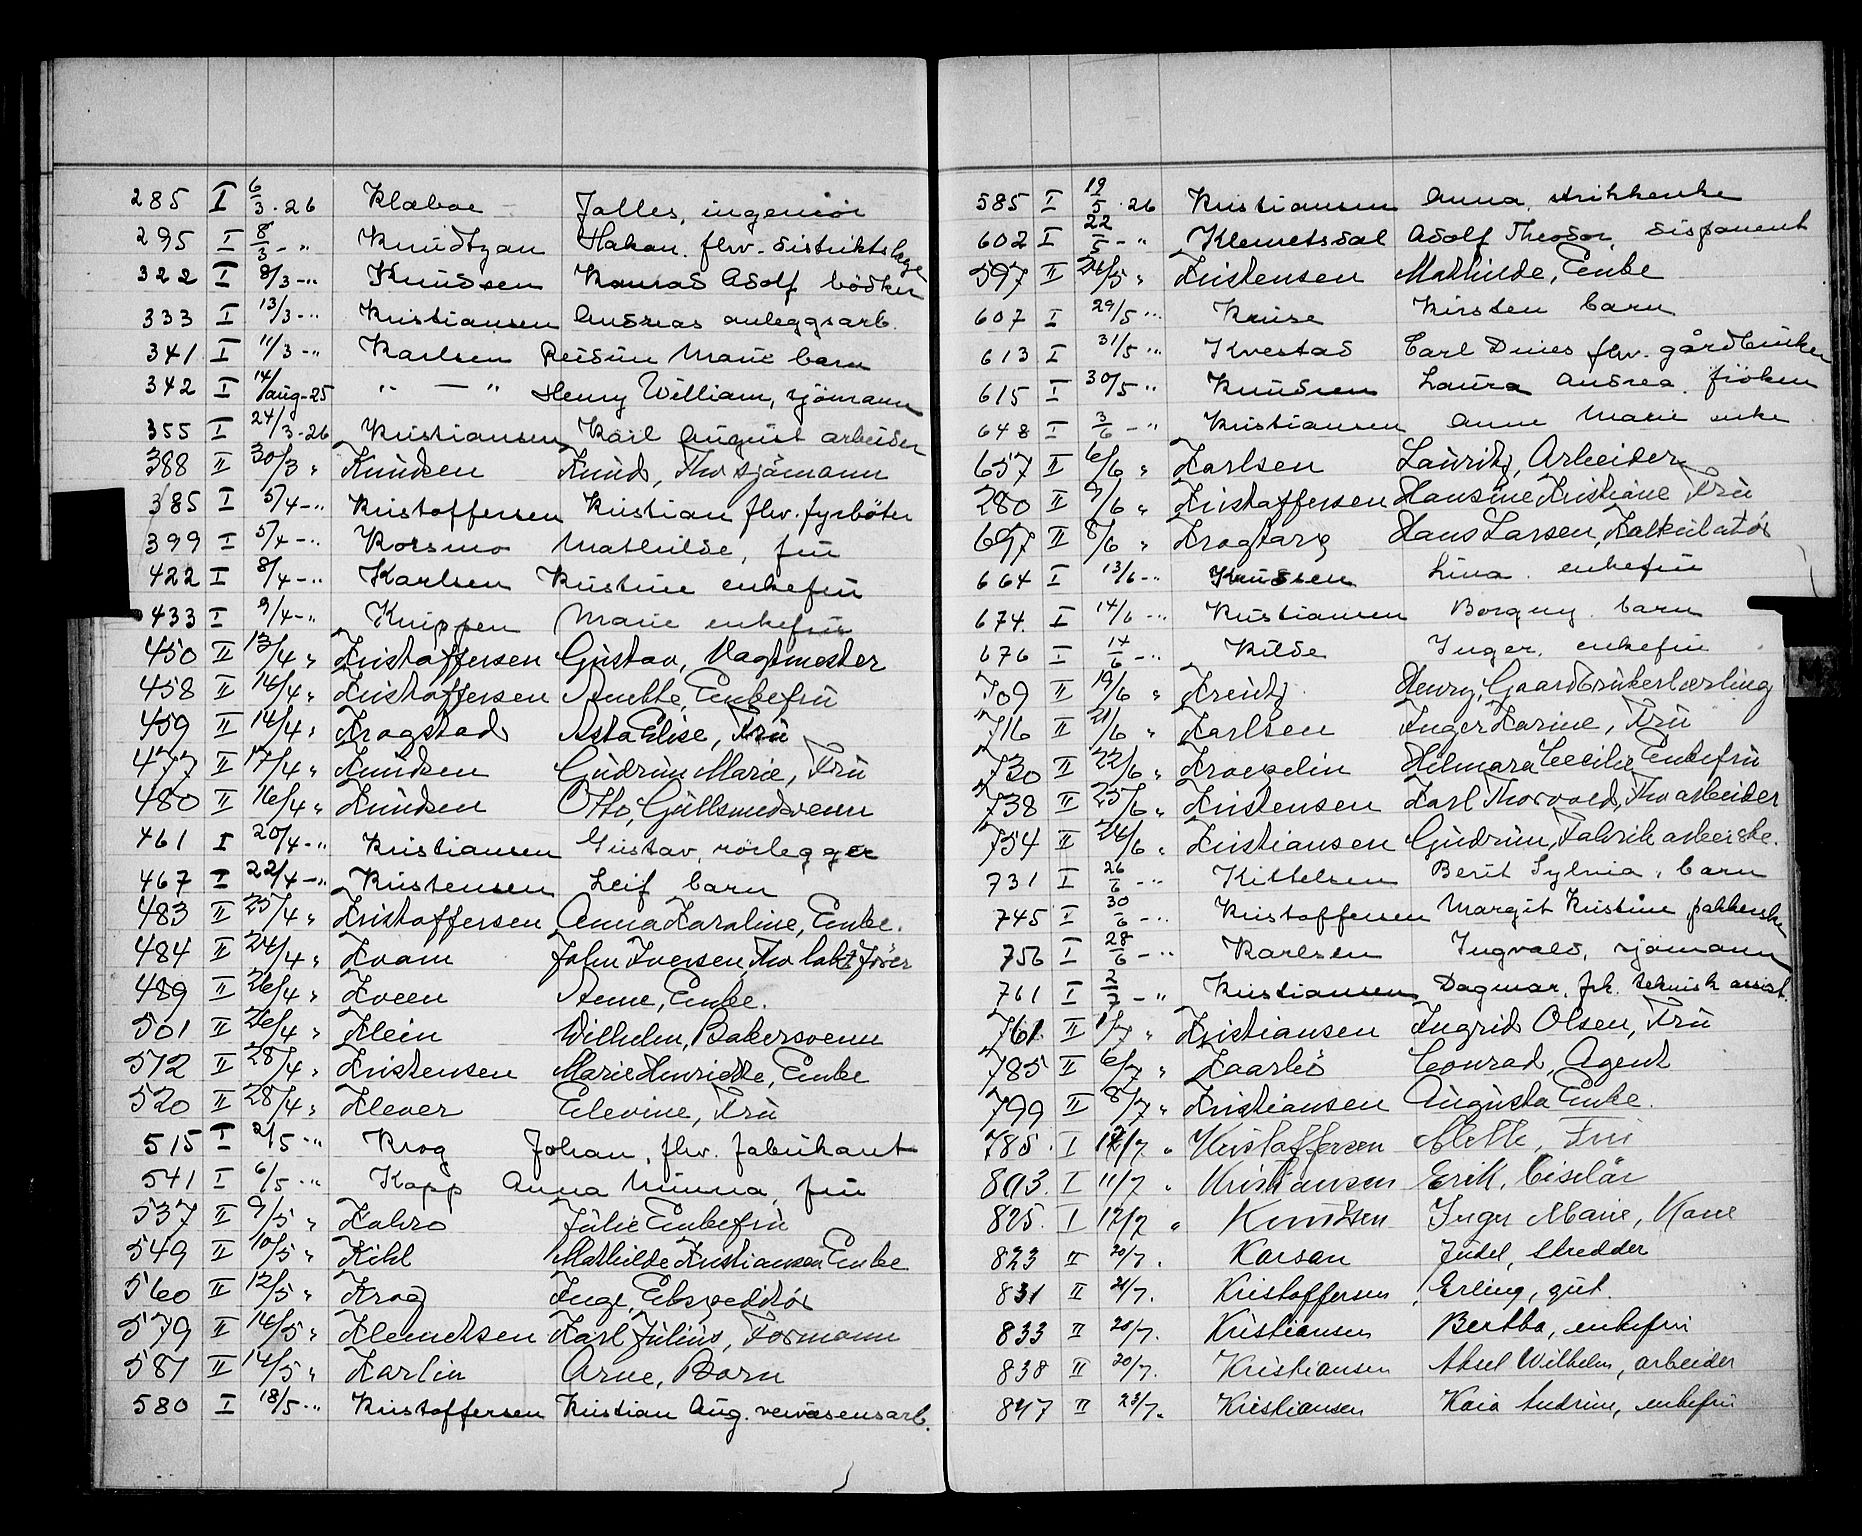 285 I 6/3.26 Klaboe Jalles, ingeniör
295 I 8/3 - " Knudtzon Hakon. fhv. distriktslege
322 I 8/3 - " Knudsen Konrad Adolf bödker
333 I 13/3 - " Kristiansen Andreas anleggsarb.
341 I 11/3 - " Karlsen Reidun Marie barn
342 I 14/aug-25 " — " Henry William, sjömann
355 I 24/3-26 Kristiansen Karl August arbeider
388 II 30/3 " Knudsen Knud, Fhv sjömann
385 I 5/4 - " Kristoffersen Kristian fhv. fyrböter
399 I 5/4 - " Korsmo Mathilde, frü
422 I 8/4 - " Karlsen Kristine enkefrü
433 I 9/4 - " Knippen Marie enkefrü
450 II 13/4 " Kristoffersen Gustav, Vagtmester
458 II 14/4 " Kristoffersen Anette, Enkefrü
459 II 14/4 " Krogstad Asta Elise, Frü
477 II 17/4 " Knudsen Gudrun Marie, Frü
480 II 16/4 " Knudsen Otto, Gullsmedsvenn
461 I 20/4 - " Kristiansen Gustav, rörlegger
467 I 22/4 - " Kristensen Leif barn
483 II 25/4 " Kristoffersen Anna Karoline, Enke.
484 II 24/4 " Kvam John Iversen, Fhv
489 II 26/4 " Kveen Anne, Enke.
501 II 26/4 " Klein Wilhelm, Bakersvenn
512 II 28/4 " Kristensen Marie Henriette, Enke
520 II 28/4 " Klever Elevine, Frü
515 I 2/5 - " Krog Johan, fhv. fabrikant
541 I 6/5 - " Kopp Anna Minna, frü
537 II 9/5 " Kabro Julie Enkefrü
549 II 10/5 " Kihl Mathilde Kristiansen Enke
560 II 12/5 " Krog Inge, Ekspeditör
579 II 16/5 " Klemetsen Karl Julius, Formann
581 II 14/5 " Karlin Arne, Barn
580 I 18/5 - " Kristoffersen Kristian Aug. veivæsensarb.
585 I 19/5.26 Kristiansen Anna, strikkerske
602 I 22/5 - " Klemetsdal Adolf Theodor, disponent
597 II 24/5 " Kristensen Mathilde, Enke
607 I 29/5 - " Kruse Kirsten barn
613 I 31/5 - " Kvestad Carl Dines fhv. gårdbruker
615 I 30/5 " Knudsen Laura Andrea. fröken
648 I 3/6 - " Kristiansen Anne Marie enke
657 II 6/6 " Karlsen Lauritz, Arbeider
280 II 9/6 " Kristoffersen Hansine Kristiane Frü
697 II 8/6 " Krogtarg Hans Larsen, Kalkulatör
664 I 13/6 - " Knudsen Lina. enkefrü
674. I 14/6 - " Kristiansen Borgny. barn
676 I 14/6 - " Kilde Inger, enkefrü
709 II 19/6 " Kreutz. Henry, Gaardbrukerlærling
716 II 21/6 " Karlsen Inger Karine, Frü
730 II 22/6 " Kraepelin Hilmara Cecilie Enkefrü
738 II 25/6 " Kristensen Karl Thorvald, Fhv arbeider
754 II 24/6 " Kristiansen Gudrun, Fabrikarbeiske.
731 I 26/6 - " Kittelsen Berit Sylvia, barn
745 I 30/6 - " Kristoffersen Margit Kristine pakkerske
756 I 28/6 - " Karlsen Ingvald, sjømann
761 I 2/7 - " Kristiansen Dagmar, frk. teknisk assist.
761. II 1/7 " Kristiansen Ingrid Olsen, Frü
785 II 6/7 " Kaarbö Conrad, Agent
799 II 8/7 " Kristiansen Augusta Enke.
785. I 12/7 " Kristoffersen Mette, Fru
803. I 11/7 " Kristiansen Erik, Ciselör
825. I 12/7 " Knudsen Inger Marie, Kone
823 II 20/7. Karsan Judel, skredder
831 II 21/7. Kristoffersen, Erling, gut.
833 II 20/7. Kristiansen Bertha, enkefru
838 II 20/7. Kristiansen Aksel Wilhelm, arbeider
847 II 23/7. Kristiansen Kaia Andrine, enkefru